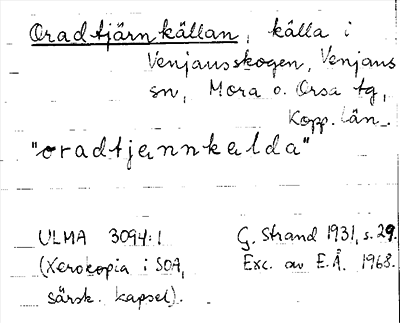 Oradtjärnkällan, källa i
Venjansskogen, Venjans
sn, Mora o. Orsa tg,
Kopp. län.
"oradtjennkelda"
ULMA 3094:1 G. Strand 1931, s. 29.
(Xerokopia i SOA, Exc. av E.Å. 1968.
särsk. kapsel).